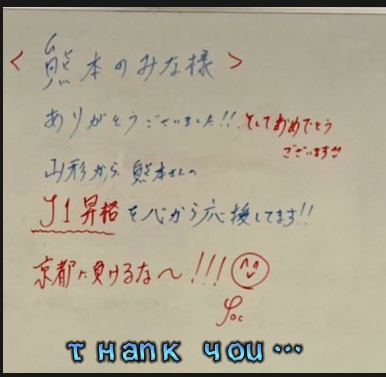 < 熊本のみな様 >
ありがとうございました!!. そしておめでとう
ございます!!
山形から 熊本さんの
J1昇格 を心から応援してます!!
京都に負けるな〜!!!
THANK YOU…